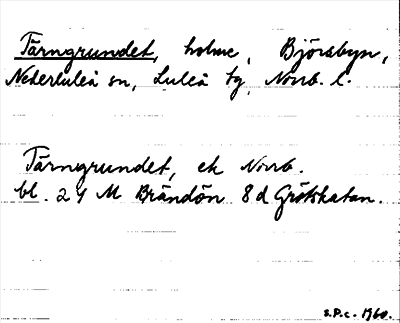 Tärngrundet, holme, Björsbyn,
Nederluleå sn, Luleå tg, Norrb. l.
Tärngrundet, ek Norrb.
bl. 24 M Brändön 8d Gråtskatan.
S.P.c. 1960.